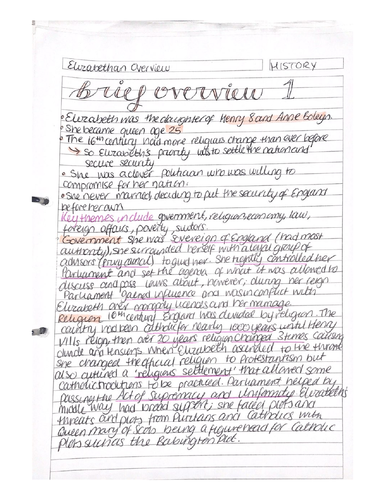 Elizabethan Overview
HISTORY
brief overview 1
• Elizabeth was the daughter of Henry 8 and Anne Boleyn.
• She became queen age 25
• The 16th century had more religious change than ever before
→ so Elizabeth's priority was to settle the nation and
secure security
• She was a clever politician who was willing to
compromise for her nation.
• She never married, deciding to put the security of England
before her own
Key themes include government, religion, economy, law,
foreign affairs, poverty, suitors.
Government She was Sovereign of England (had most
authority), she surrounded herself with a loyal group of
advisors (privy council) to guide her. She tightly controlled her
Parliament and set the agenda of what it was allowed to
discuss and pass laws about, however, during her reign
Parliament gained influence and was in conflict with
Elizabeth over monopoly licences and her marriage.
Religion 16th century England was divided by religion. The
country had been catholic for nearly 1000 years until Henry
VIIIs reign, then over 20 years religion changed 3 times causing
divide and tensions. When Elizabeth ascended to the throne
she changed the official religion to Protestantism but
also outlined a 'religious settlement' that allowed some
Catholic traditions to be practised. Parliament helped by
passing the Act of Supremacy and Uniformity. Elizabeth's
middle way had broad support, she faced plots and
threats and plots from Puritans and Catholics with
Queen Mary of Scots being a figurehead for Catholic
plots such as the Babington Plot.